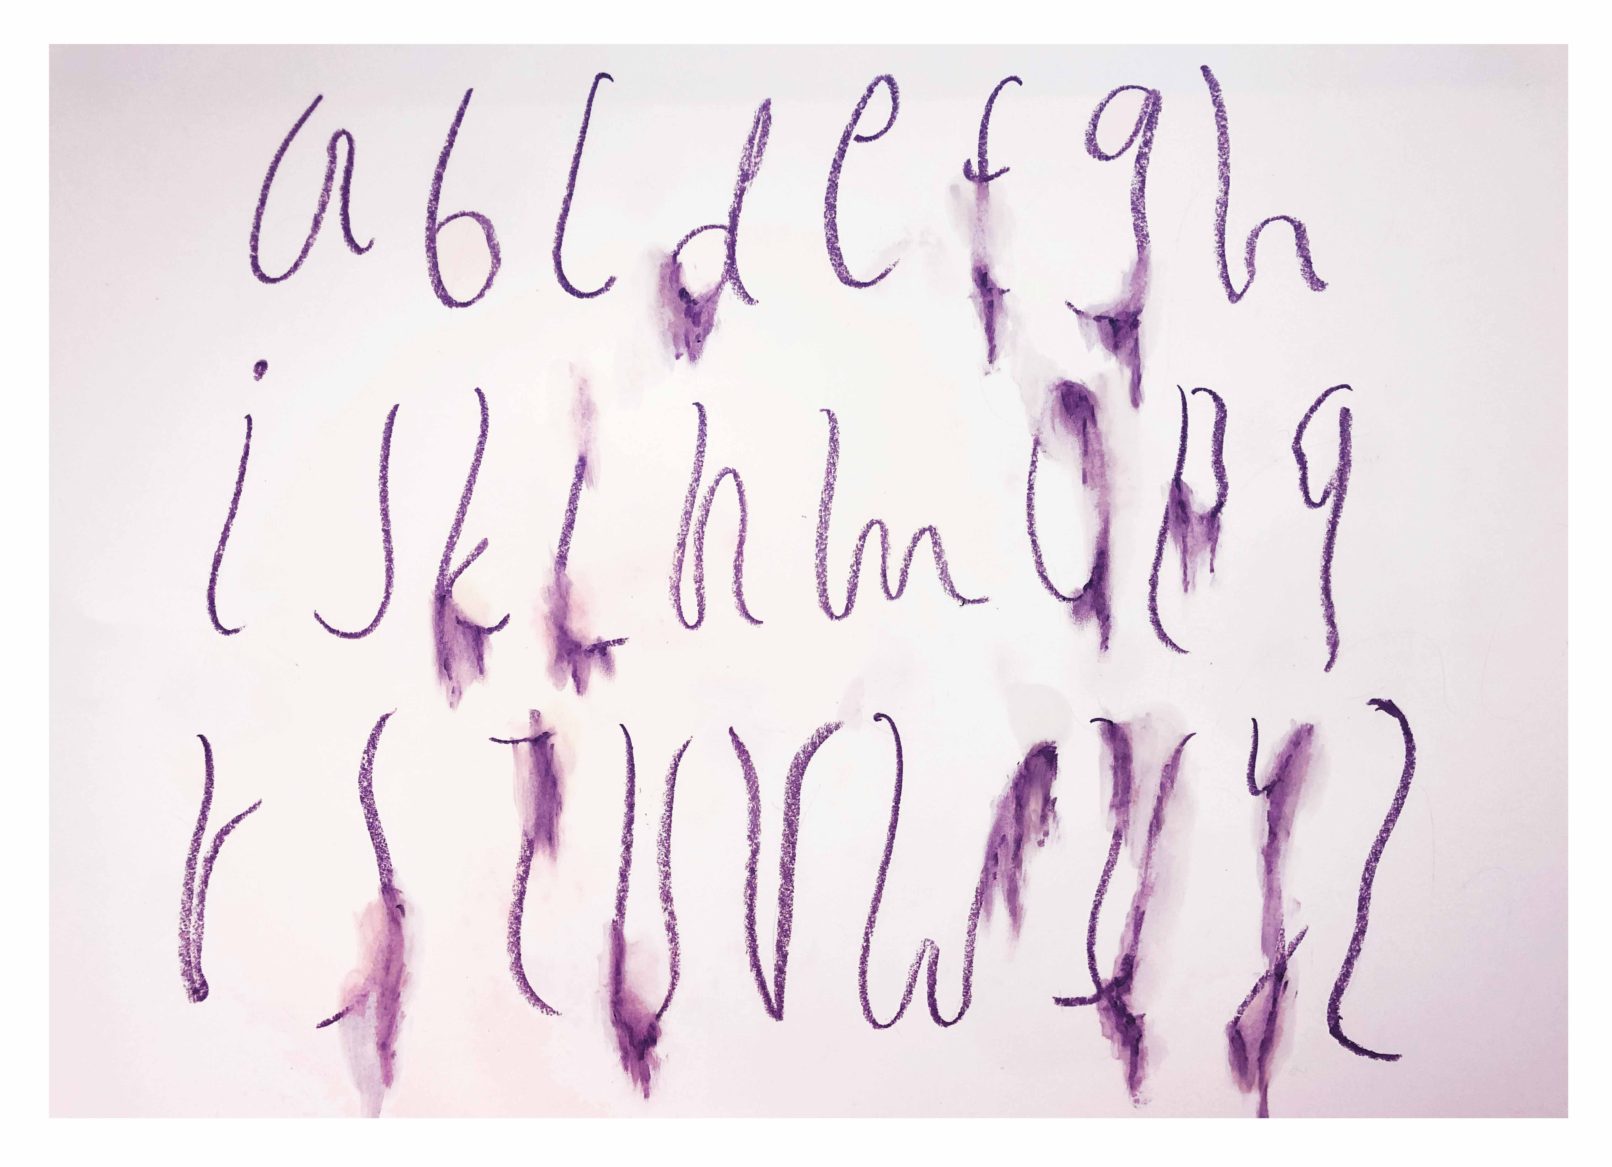 a b c d e f g h
i j k l n m o p q
r s t u v w x y z